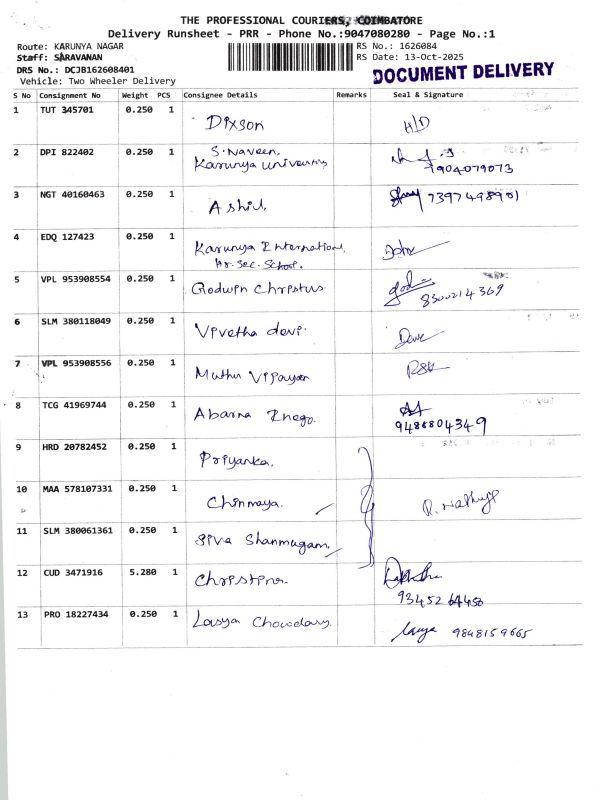 THE PROFESSIONAL COURIERS, COIMBATORE
Delivery Runsheet - PRR - Phone No.:9047080280 - Page No.:1
Route: KARUNYA NAGAR RS No.: 1626084
Staff: SARAVANAN RS Date: 13-Oct-2025
DRS No.: DCJB162608401 DOCUMENT DELIVERY
Vehicle: Two Wheeler Delivery
S No Consignment No Weight PCS Consignee Details Remarks Seal & Signature
1 TUT 345701 0.250 1 Dixson H/D
2 DPI 822402 0.250 1 S.Naveen,
Karunya University 7904079073
3 NGT 40160463 0.250 1 Ashil, 7397498901
4 EDQ 127423 0.250 1 Karunya International,
Hr.Sec.School.
5 VPL 953908554 0.250 1 Godwin Christus
8300214369
6 SLM 380118049 0.250 1 Vivetha devi.
7 VPL 953908556 0.250 1 Muthu Vijayan
8 TCG 41969744 0.250 1 Abarna
9488804349
9 HRD 20782452 0.250 1 Priyanka.
10 MAA 578107331 0.250 1 Chinmaya.
11 SLM 380061361 0.250 1 Siva Shanmugam,
12 CUD 3471916 5.280 1 Christina.
13 PRO 18227434 0.250 1 Lasya Chowdary 9848159665